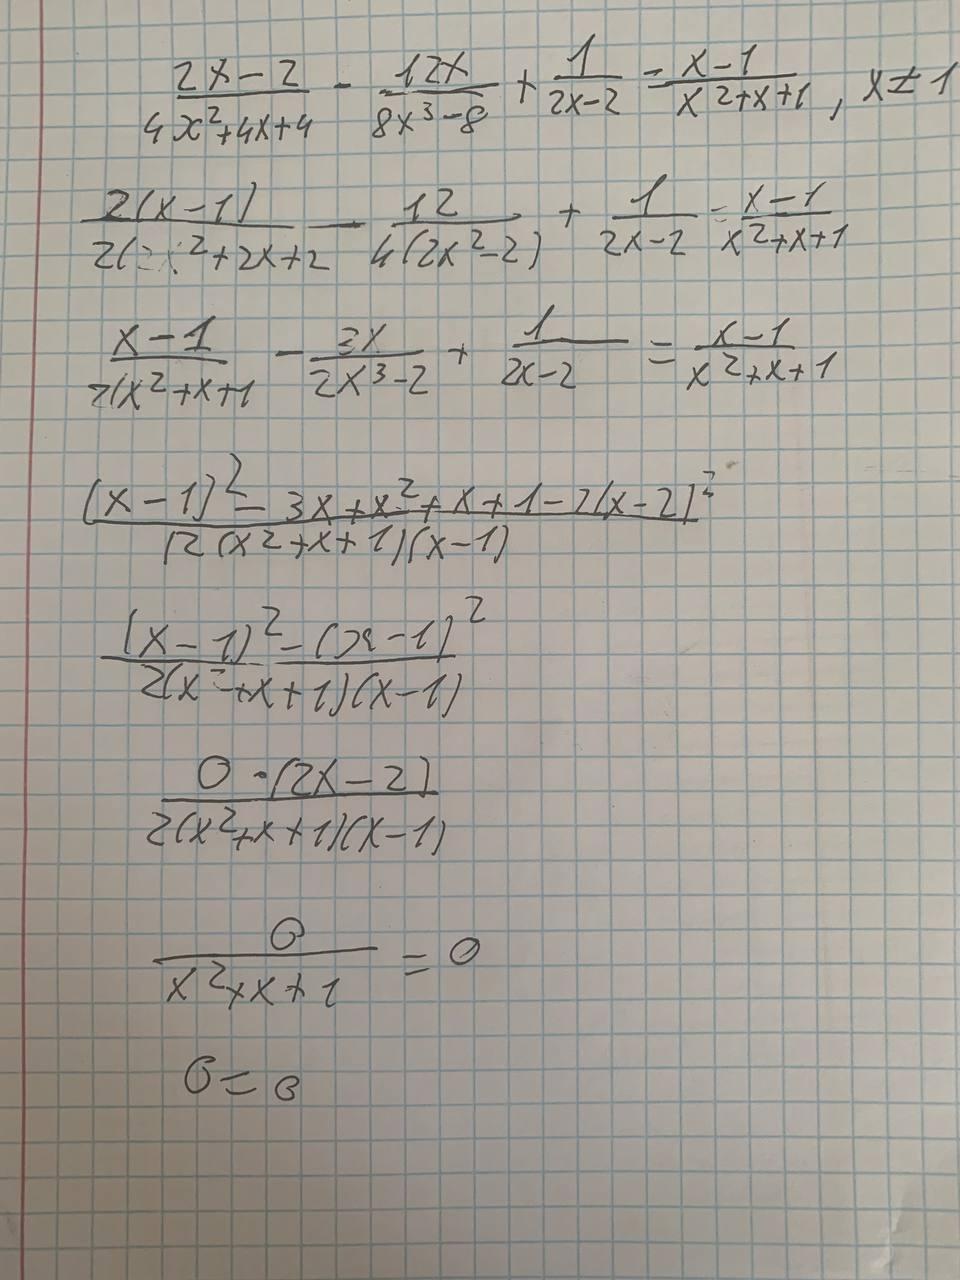 (2x-2)/(4x²+4x+4) - 12x/(8x³-8) + 1/(2x-2) = (x-1)/(x²+x+1), x≠1
2(x-1)/2(2x²+2x+2 - 12/4(2x²-2) + 1/(2x-2) = (x-1)/(x²+x+1)
(x-1)/2(x²+x+1 - 3x/(2x³-2) + 1/(2x-2) = (x-1)/(x²+x+1)
(x-1)²-3x+x²+x+1-2(x-2)²/(2(x²+x+1)(x-1)
(x-1)²-(x-1)²/2(x²+x+1)(x-1)
0·(2x-2)/2(x²+x+1)(x-1)
0/(x²+x+1) = 0
0=0